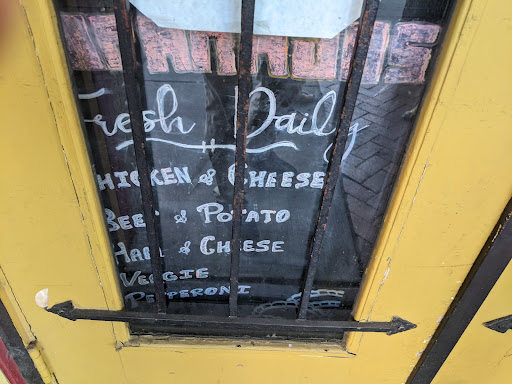 Fresh Daily
CHICKEN & CHEESE
BEEF & POTATO
HAM & CHEESE
VEGGIE
PEPPERONI